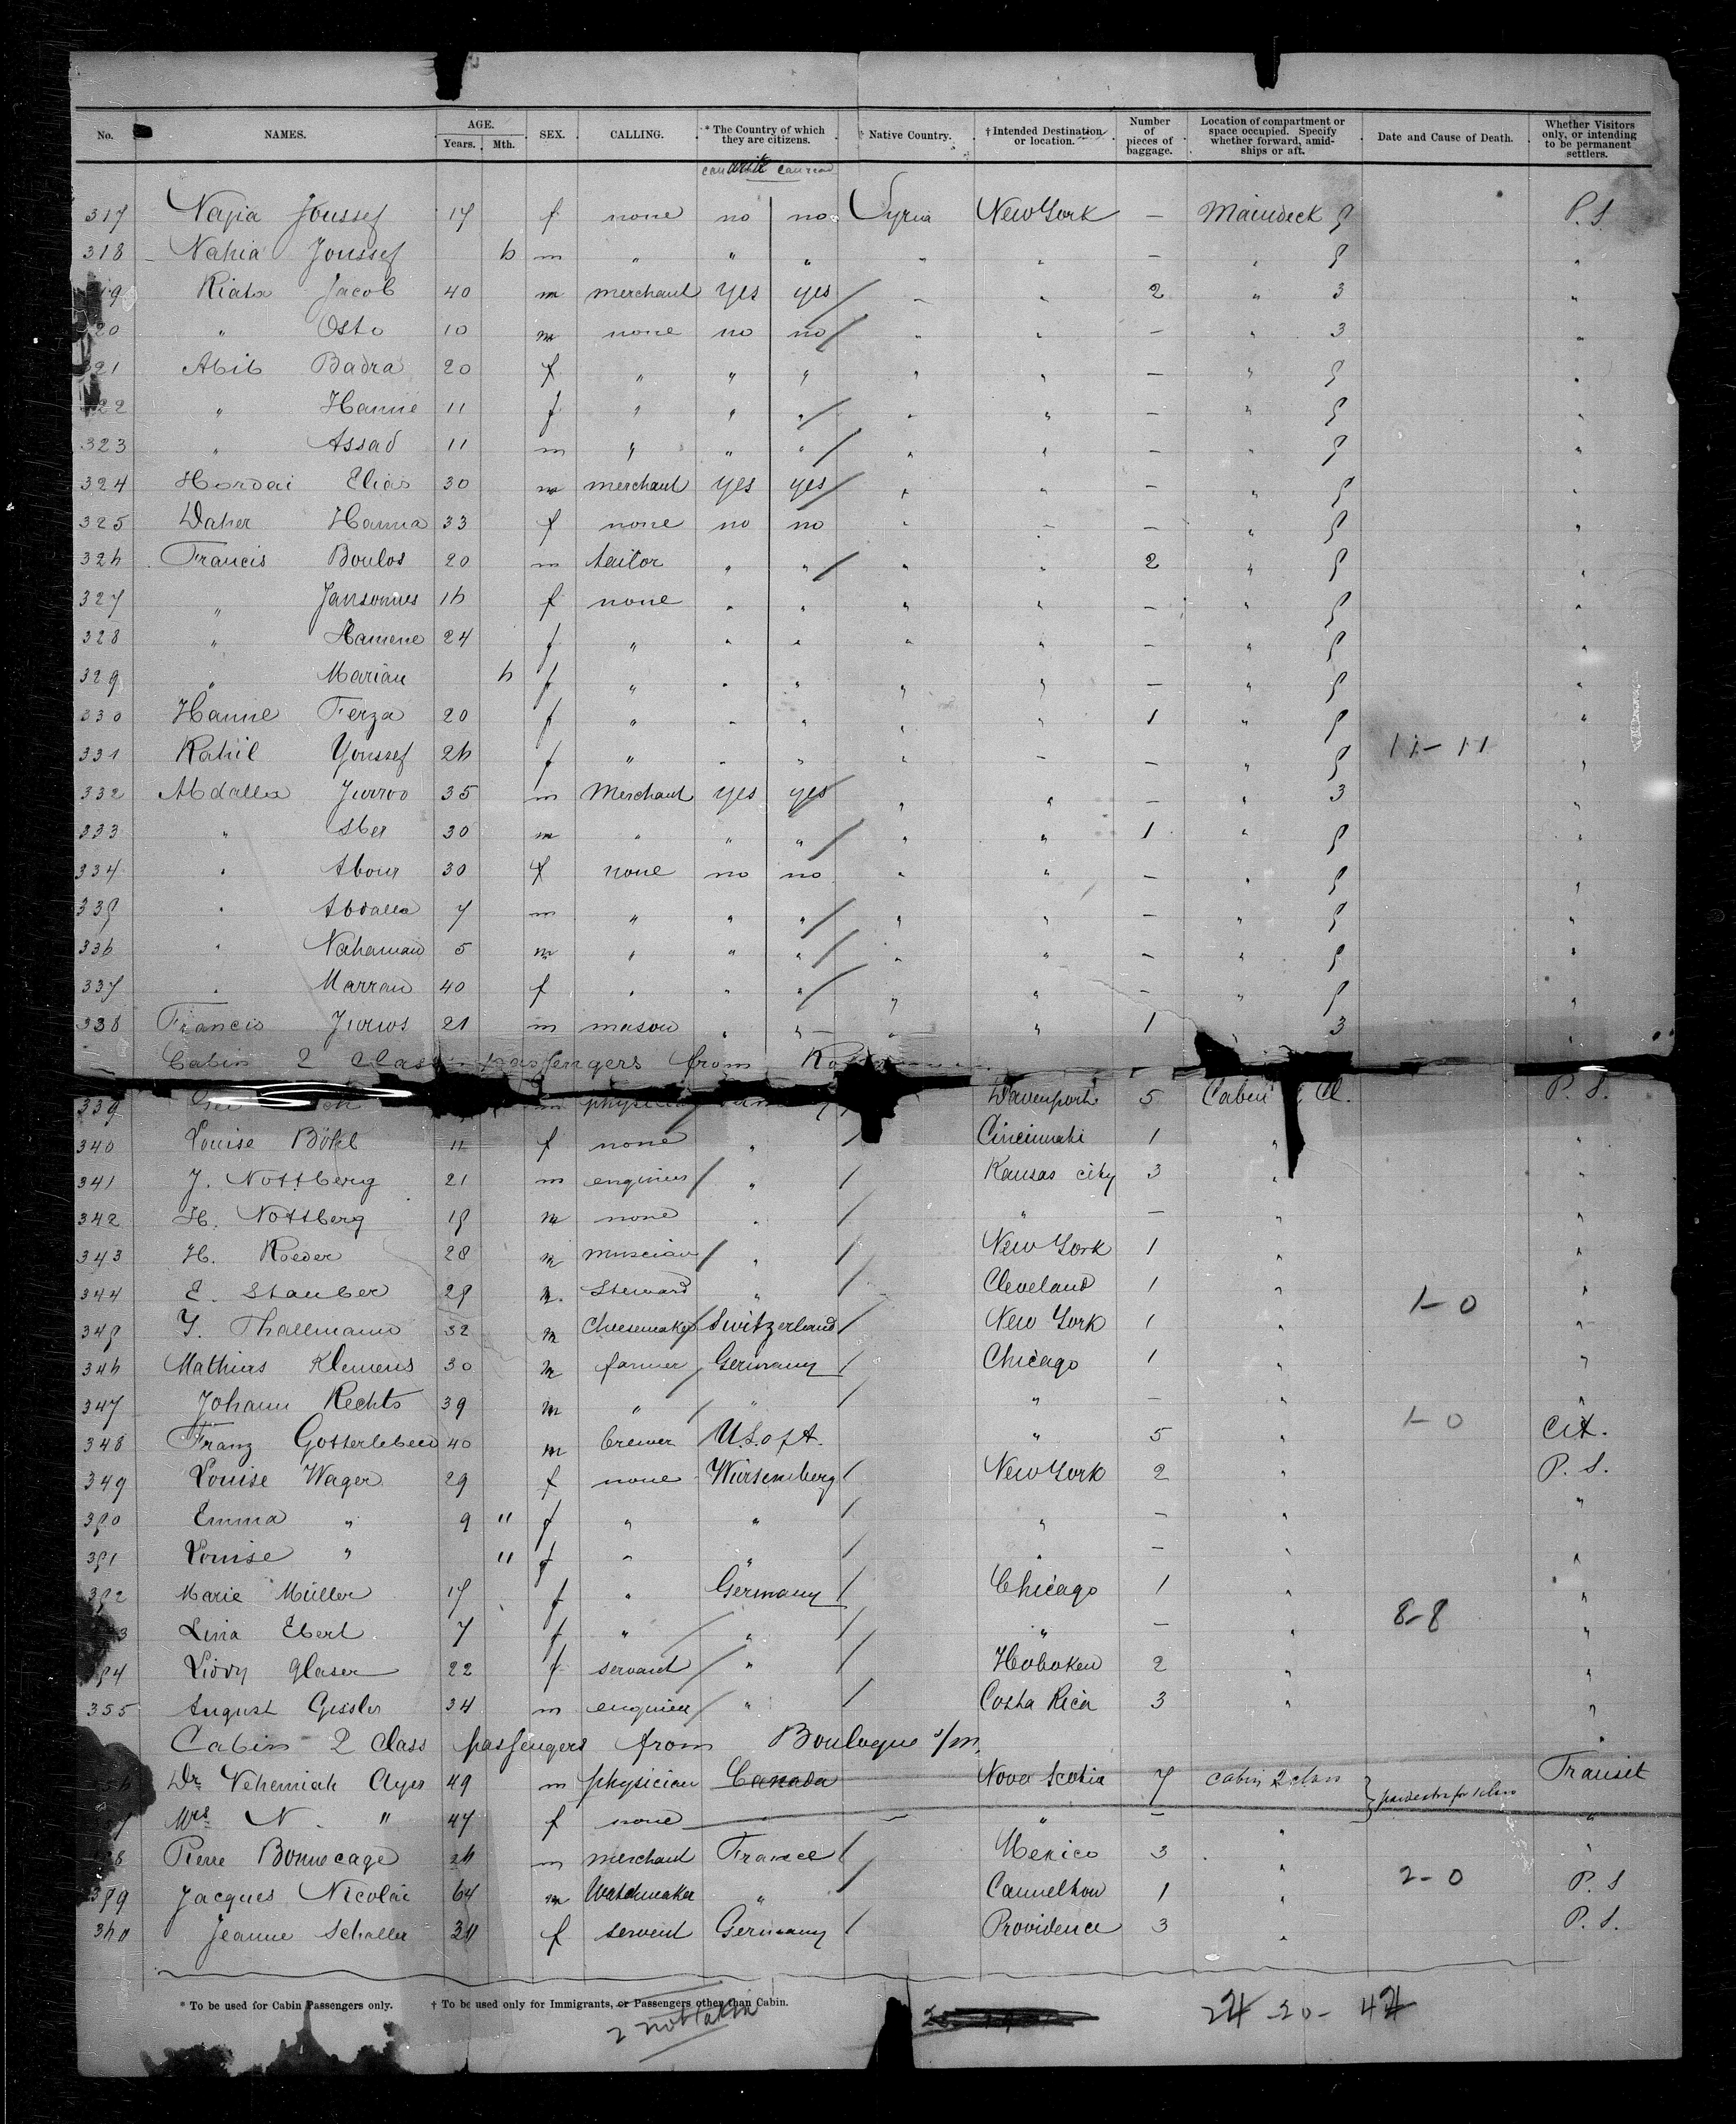 No. NAMES. AGE. Years. Mth. SEX. CALLING. * The Country of which they are citizens. † Native Country. † Intended Destination or location. Number of pieces of baggage. Location of compartment or space occupied. Specify whether forward, amid-ships or aft. Date and Cause of Death. Whether Visitors only, or intending to be permanent settlers.
can write can read
317 Nagia Joussef 17 f none no no Syria New York — Maindeck P. S.
318 Nahia Joussef 6 m " " " " " — " "
19 Kiata Jacob 40 m merchant yes yes " " 2 " 3 "
20 " Osto 10 m none no no " " — " 3 "
321 Abib Badra 20 f " " " " " — " "
322 " Hanne 11 f " " " " " — " "
323 " Assad 11 m " " " " " — " "
324 Hordai Elias 30 m merchant yes yes " " — " "
325 Daher Hanna 33 f none no no " " — " "
326 Francis Boulos 20 m tailor " " " " 2 " "
327 " 16 f none " " " " — " "
328 " Hamene 24 f " " " " " — " "
329 " Marian 6 f " " " " " — " "
330 Hanne Ferza 20 f " " " " " 1 " "
331 Rahil Youssef 26 f " " " " — — " 11-11 "
332 Abdalla 35 m Merchant yes yes " " — " 3 "
333 " Sber 30 m " " " " " 1 " "
334 " Abour 30 f none no no " " — " "
335 " Abdalla 7 m " " " " " — " "
336 " Nahaman 5 m " " " " " — " "
337 " Marran 40 f " " " " " — " "
338 Francis 21 m mason " " " " 1 " 3 "
Cabin 2 Class passengers from
339 m Davenport 5 Cabin Cl. P. S.
340 Louise 11 f none " Cincinnati 1 " "
341 J. Nottberg 21 m engineer " Kansas city 3 " "
342 H. Nottberg 15 m none " " — " "
343 H. Roeder 28 m musician " New York 1 " "
344 E. Stauber 25 m Steward " Cleveland 1 " 1-0 "
345 J. Thallmann 32 m Cheesemaker Switzerland New York 1 " "
346 Mathias Klemens 30 m farmer Germany Chicago 1 " "
347 Johann Rechts 39 m " " " — " "
348 Franz Gotterleben 40 m brewer U.S. of A. " 5 " 1-0 Cit.
349 Louise Wager 29 f none Würtemberg New York 2 " P. S.
350 Emma " 9 11 f " " " — " "
351 Louise " 11 f " " " — " "
352 Marie Müller 17 f " Germany Chicago 1 " "
3 Lina Ebert 7 f " " " — " 8-8 "
354 Liddy Glaser 22 f servant " Hoboken 2 " "
355 August Gissler 34 m engineer " Costa Rica 3 " "
Cabin 2 Class passengers from Boulogne s/m. "
56 Dr. Nehemiah Ayer 49 m physician Canada Nova Scotia 7 cabin 2 class Transit
57 Mrs. N. " 47 f none — " — "
58 Pierre Bonnecage 26 m merchant France Mexico 3 " "
359 Jacques Nicolai 64 m Watchmaker " 1 " 2-0 P. S
360 Jeanne Schaller 30 f servent Germany Providence 3 " P. S.
* To be used for Cabin Passengers only. † To be used only for Immigrants, or Passengers other than Cabin.
2 not taken
24 -20- 42